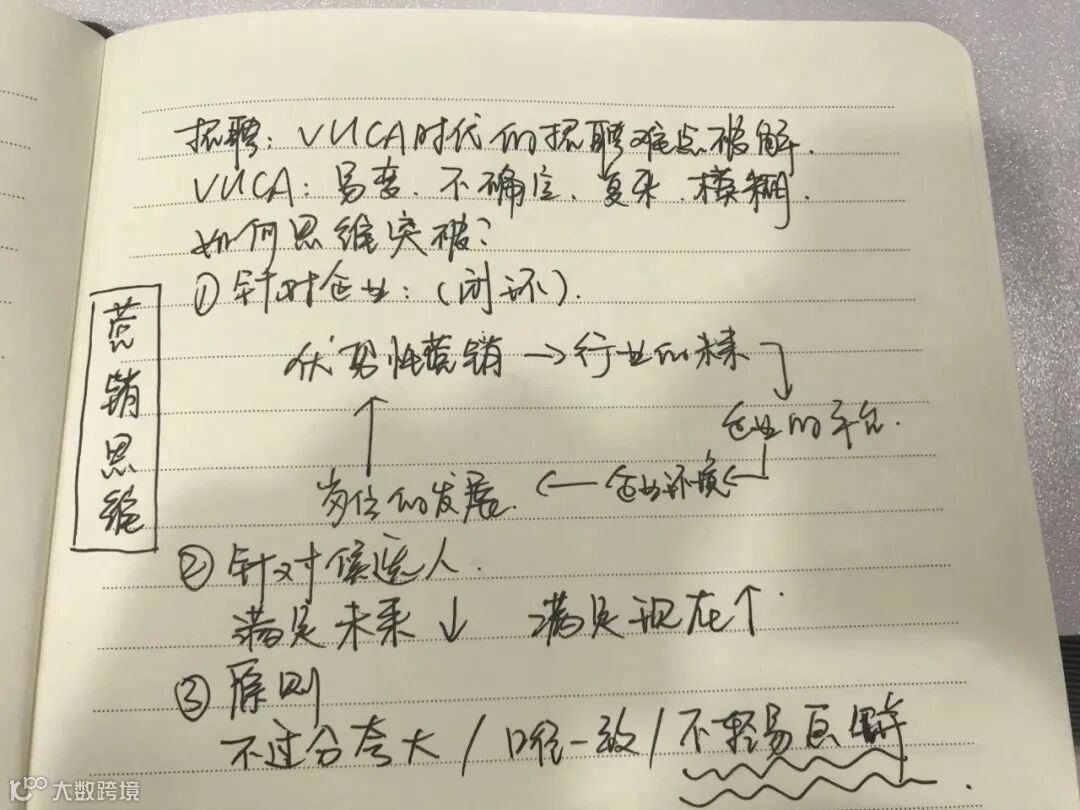 招聘：VUCA时代的招聘难点破解.
VUCA：易变、不确定、复杂、模糊.
如何思维突破？
①针对企业：(闭环).
营销思维
优势性营销→行业的未来
企业的平台.
岗位的发展. ← 企业环境 ←
②针对候选人.
满足未来↓ 满足现在↑
③原则
不过分夸大/口径一致/不轻易瓦解
大数跨境